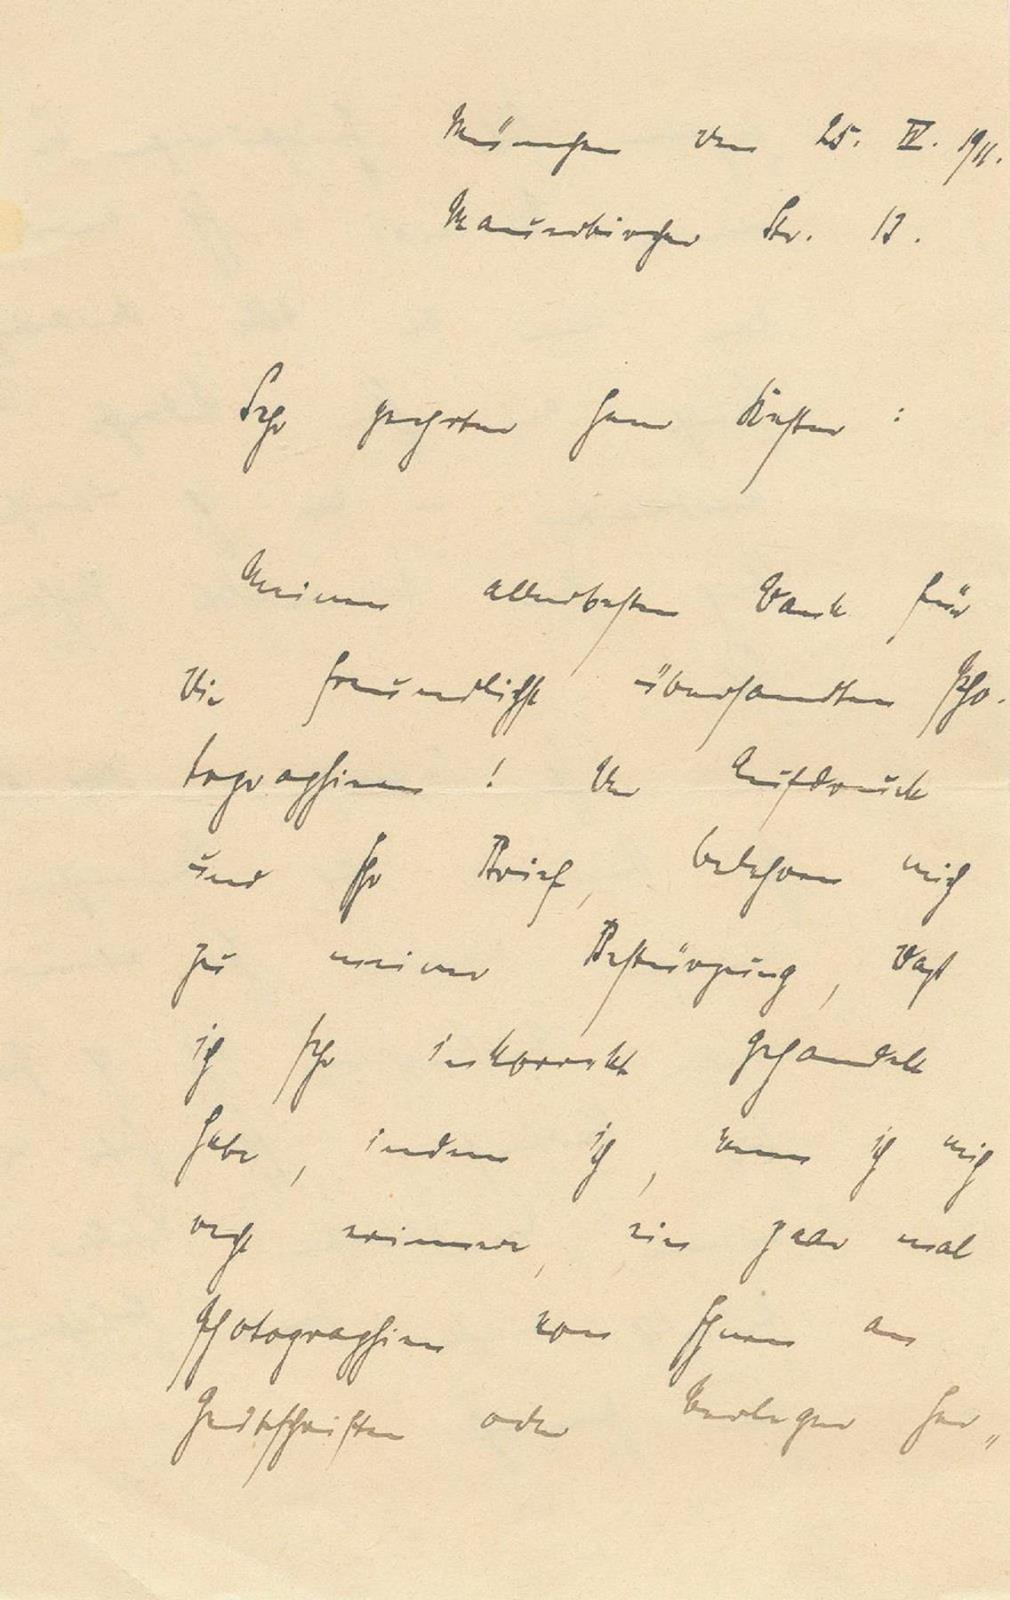 München den 25. IV. 1911.
Mauerkircher Str. 13.
Sehr geehrter Herr Kester :
Meinen allerbesten Dank für
die freundlichst übersandten Pho-
tographien ! Der Aufdruck
und Ihr Brief, belehren mich
zu meiner Bestürzung, daß
ich sehr inkorrekt gehandelt
habe, indem ich, wenn ich mich
recht erinnere, ein paar mal
Photographien von Ihnen an
Zeitschriften oder Verleger her„